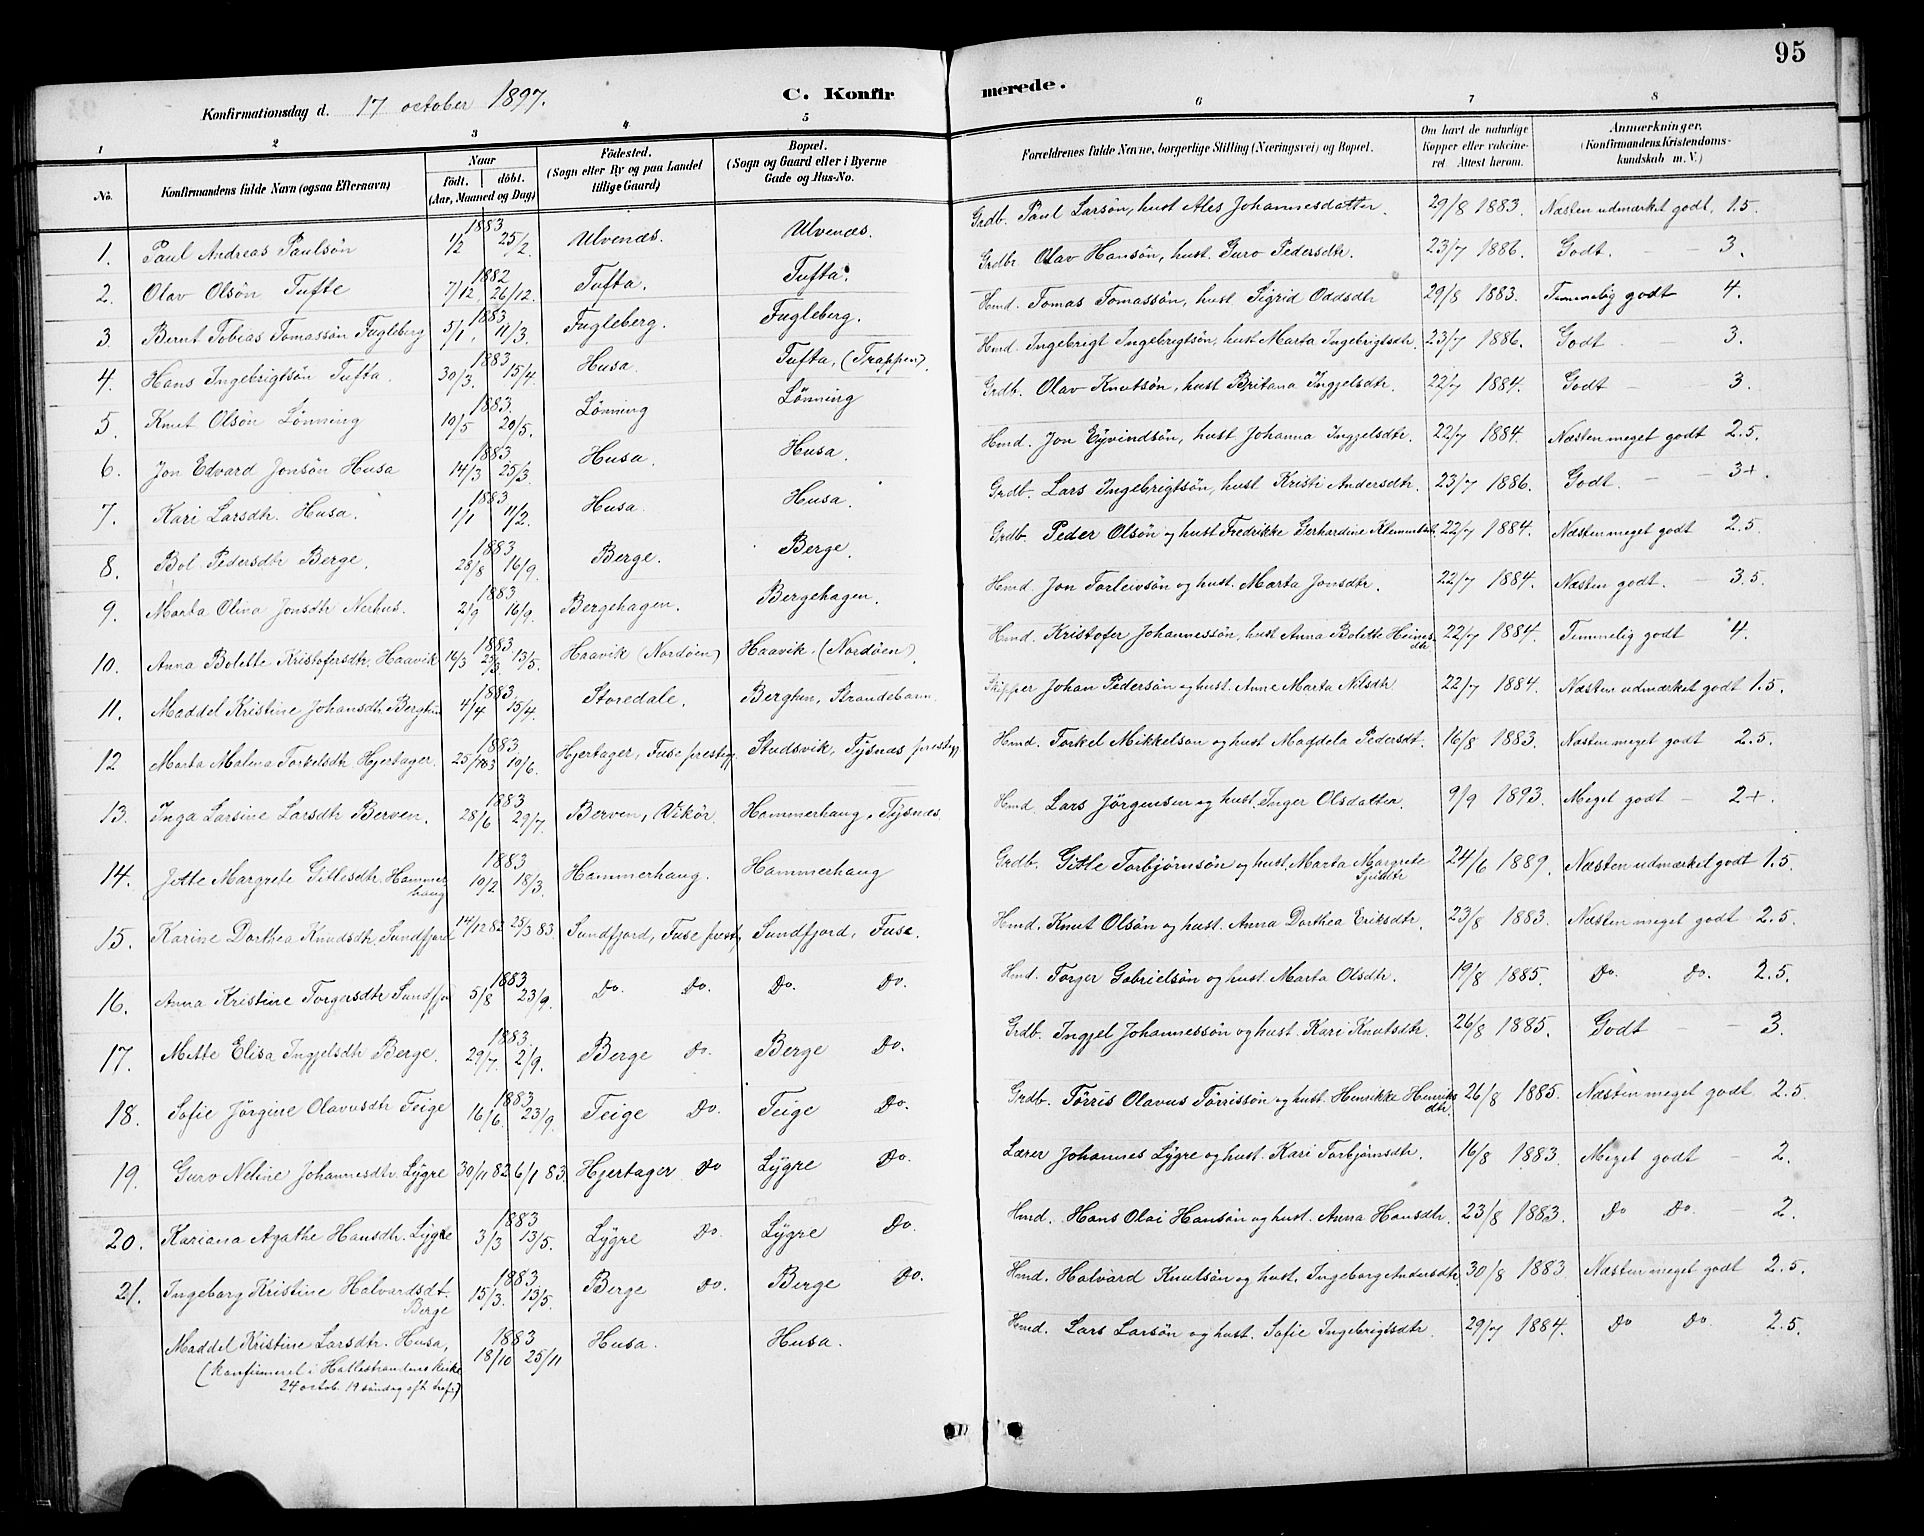 95
Konfirmationsdag d. 17 october 1897. C. Konfirmerede.
1 2 3 4 5 6 7 8
No. Konfirmandens fulde Navn (ogsaa Efternavn) Naar födt. döbt. (Aar, Maaned og Dag) Födested. (Sogn eller By og paa Landet tillige Gaard) Bopæl. (Sogn og Gaard eller i Byerne Gade og Hus-No. Forældrenes fulde Navne, borgerlige Stilling (Næringsvei) og Bopæl. Om havt de naturlige Kopper eller vakcineret Attest herom. Anmærkninger. (Konfirmandens Kristendomskundskab m. V.)
1. Paul Andreas Paulsön 1883 1/2 25/2. Ulvenæs. Ulvenæs. Grdb. Paul Larsön, hust Ales Johannesdatter. 29/8 1883. Næsten udmærket godt, 1.5.
2. Olav Olsön Tufte 1882 7/12. 26/12. Tufta. Tufta. Grdbr Olav Hansön, hust. Guro Pedersdtr. 23/7 1886. Godt. — 3.
3. Bernt Tobias Tomassön Fugleberg 1883 5/1. 11/3. Fugleberg. Fugleberg. Hmd. Tomas Tomassön, hust Sigrid Oddsdtr 29/8 1883. Temmelig godt 4.
4. Hans Ingebrigtsön Tufta. 1883 30/3. 15/4. Husa. Tufta, (Trappen). Hmd. Ingebrigt Ingebrigtsön, hust Marta Ingebrigtsdtr. 23/7 1886. Godt — 3.
5. Knut Olsön Lönning 1883. 19/5 20/5. Lönning Lönning Grdb. Olav Knutsön, hust Britana Ingjelsdtr. 22/7 1884. Godt — 3.
6. Jon Edvard Jonsön Husa 1883. 14/3 25/3. Husa. Husa. Hmd. Jon Eyvindsön, hust Johanna Ingjelsdtr. 22/7 1884. Næsten meget godt 2.5.
7. Kari Larsdtr. Husa. 1883 1/1 11/2. Husa. Husa. Grdb. Lars Ingebrigtsön, hust Kristi Andersdtr. 23/7 1886. Godt. — 3+.
8. Bol Pedersdtr Berge. 1883 28/8 16/9. Berge. Berge. Grdb. Peder Olsön og hust Fredrikke Gerhardine 22/7 1884. Næsten meget godt 2.5.
9. Marta Olina Jonsdtr Nerhus. 1883 2/9 16/9. Bergehagen. Bergehagen. Hmd. Jon Torleivsön og hust. Marta Jonsdtr. 22/7 1884. Næsten godt. — 3.5.
10. Anna Bolette Kristofersdtr. Haavik 1883 16/3 13/5. Haavik (Nordöen) Haavik. (Nordöen). Hmd. Kristofer Johannessön, hust Anna Bolette Heinesdtr 22/7 1884. Temmelig godt 4.
11. Maddel Kristine Johansdtr Bergtun 1883. 4/4 15/4. Storedale. Bergtun, Strandebarm. Skipper Johan Pedersön og hust. Anne Marta Nilsdtr 22/7 1884. Næsten udmærket godt 1.5.
12 Marta Malena Torkelsdtr. Hjertager. 1883. 25/ 10/6. Hjertager, Fuse prestgj. Stadsvik, Tysnæs prestgj Hmd. Torkel Mikkelson og hust Magdela Pedersdt. 16/8 1883. Næsten meget godt 2.5.
13. Inga Larsine Larsdtr Berven. 1883 28/6 29/7. Berven, Vikör. Hammerhaug, Tysnæs. Hmd Lars Jörgensen og hust. Inger Olsdatter. 9/9 1893. Meget godt — 2+.
14. Jitte Margrete Gitlesdtr. Hammerhaug 1883 19/2 18/3. Hammerhaug. Hammerhaug Grdb. Gitle Torbjörnsön og hust. Marta Margrete Sjuldtr 24/6 1889. Næsten udmærket godt 1.5.
15. Karine Dorthea Knudsdtr. Sundfjord 14/12 82 25/3 83. Sundfjord, Fuse prest, Sundfjord, Fuse. Hmd. Knut Olsön og hust. Anna Dorthea Eriksdtr. 23/8 1883. Næsten meget godt 2.5.
16. Anna Kristine Torgersdtr Sundfjo 1883 5/8 23/9. Do. Do. Do. Do. Hmd. Torger Gabrielsön og hust. Marta Olsdtr. 19/8 1885. Do. Do. 2.5.
17. Mette Elisa Ingjelsdtr Berge. 1883 29/7. 2/9. Berge Do. Berge Do. Grdb. Ingjel Johannessön og hust. Kari Knutsdtr. 26/8 1885. Godt — 3.
18. Sofie Jörgine Olavusdtr Teige 1883 16/6. 23/9. Teige Do. Teige Do. Grdb. Törris Olavus Törrissön og hust. Henrikke Henriksdtr. 26/8 1885. Næsten meget godt 2.5.
19. Guro Neline Johannesdtr. Lygre 30/11 82. 6/1 83. Hjertager Do Lygre Do. Lærer Johannes Lygre og hust. Kari Torbjörnsdtr. 16/8 1883. Meget godt — 2.
20. Kariana Agathe Hansdtr. Lygre 1883 3/3 13/5. Lygre Do. Lygre Do. Hmd. Hans Olai Hansön og hust. Anna Hansdtr. 23/8 1883. Do Do. 2.
21. Ingeborg Kristine Halvardsdt. Berge 1883 15/3. 13/5. Berge Do. Berge Do. Hmd. Halvard Knutsön og hust. Ingeborg Andersdtr. 30/8 1883 Næsten meget godt 2.5.
Maddel Kristine Larsdtr. Husa, 1883 18/10 25/11 Husa. Husa. Hmd. Lars Larsön og hust. Sofie Ingebrigtsdtr. 29/7 1884. Do Do. 2.5.
(konfirmeret i Hatlestrandens kirke
24 octob. 19 söndag eft. tref.)